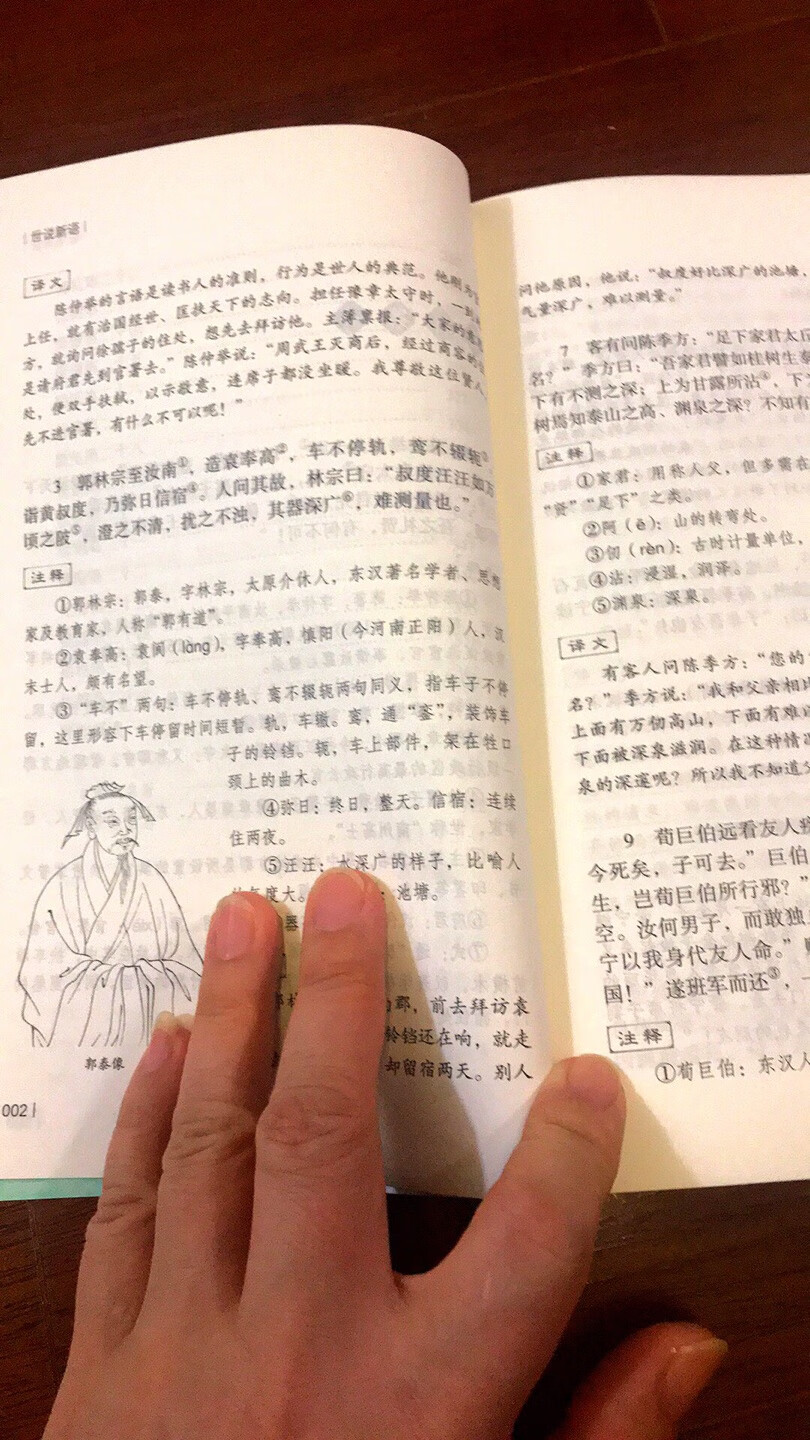 世说新语
译文
陈仲举的言语是读书人的准则，行为是世人的典范。他刚
上任，就有治国经世、匡扶天下的志向。担任豫章太守时，一到
方，就询问徐孺子的住处，想先去拜访他。主簿禀报：“大家的意
是请府君先到官署去。”陈仲举说：“周武王灭商后，经过商容的住
处，便双手扶轼，以示敬意，连席子都没坐暖。我尊敬这位贤人，
先不进官署，有什么不可以呢！”
3 郭林宗至汝南①，造袁奉高②，车不停轨，鸾不辍轭③，
诣黄叔度，乃弥日信宿④。人问其故，林宗曰：“叔度汪汪如万
顷之陂⑤，澄之不清，扰之不浊，其器深广⑥，难测量也。”
注释
①郭林宗：郭泰，字林宗，太原介休人，东汉著名学者、思想
家及教育家，人称“郭有道”。
②袁奉高：袁阆（làng），字奉高，慎阳（今河南正阳）人，汉
末士人，颇有名望。
③“车不”两句：车不停轨、鸾不辍轭两句同义，指车子不停
留，这里形容下车停留时间短暂。轨，车辙。鸾，通“銮”，装饰车
子的铃铛。轭，车上部件，架在牲口
颈上的曲木。
④弥日：终日，整天。信宿：连续
住两夜。
⑤汪汪：水深广的样子，比喻人
度大。
：池塘。
器
郡，前去拜访袁
铃铛还在响，就走
却留宿两天。别人
郭泰像
002
问他原因，他说：“叔度好比深广的池塘，
气量深广，难以测量。”
7 客有问陈季方：“足下家君太丘
名？”季方曰：“吾家君譬如桂树生泰
下有不测之深；上为甘露所沾④，下
树焉知泰山之高、渊泉之深？不知有
注释
①家君：用称人父，但多需在
“贤”“足下”之类。
②阿（ē）：山的转弯处。
③仞（rèn）：古时计量单位，
④沾：浸湿，润泽。
⑤渊泉：深泉。
译文
有客人问陈季方：“您的
名？”季方说：“我和父亲相比
上面有万仞高山，下面有难
下面被深泉滋润。在这种情况
泉的深邃呢？所以我不知道父
9 荀巨伯远看友人
今死矣，子可去。”巨伯
生，岂荀巨伯所行邪？”
空。汝何男子，而敢独
宁以我身代友人命。”
国！”遂班军而还③，
注释
①荀巨伯：东汉人